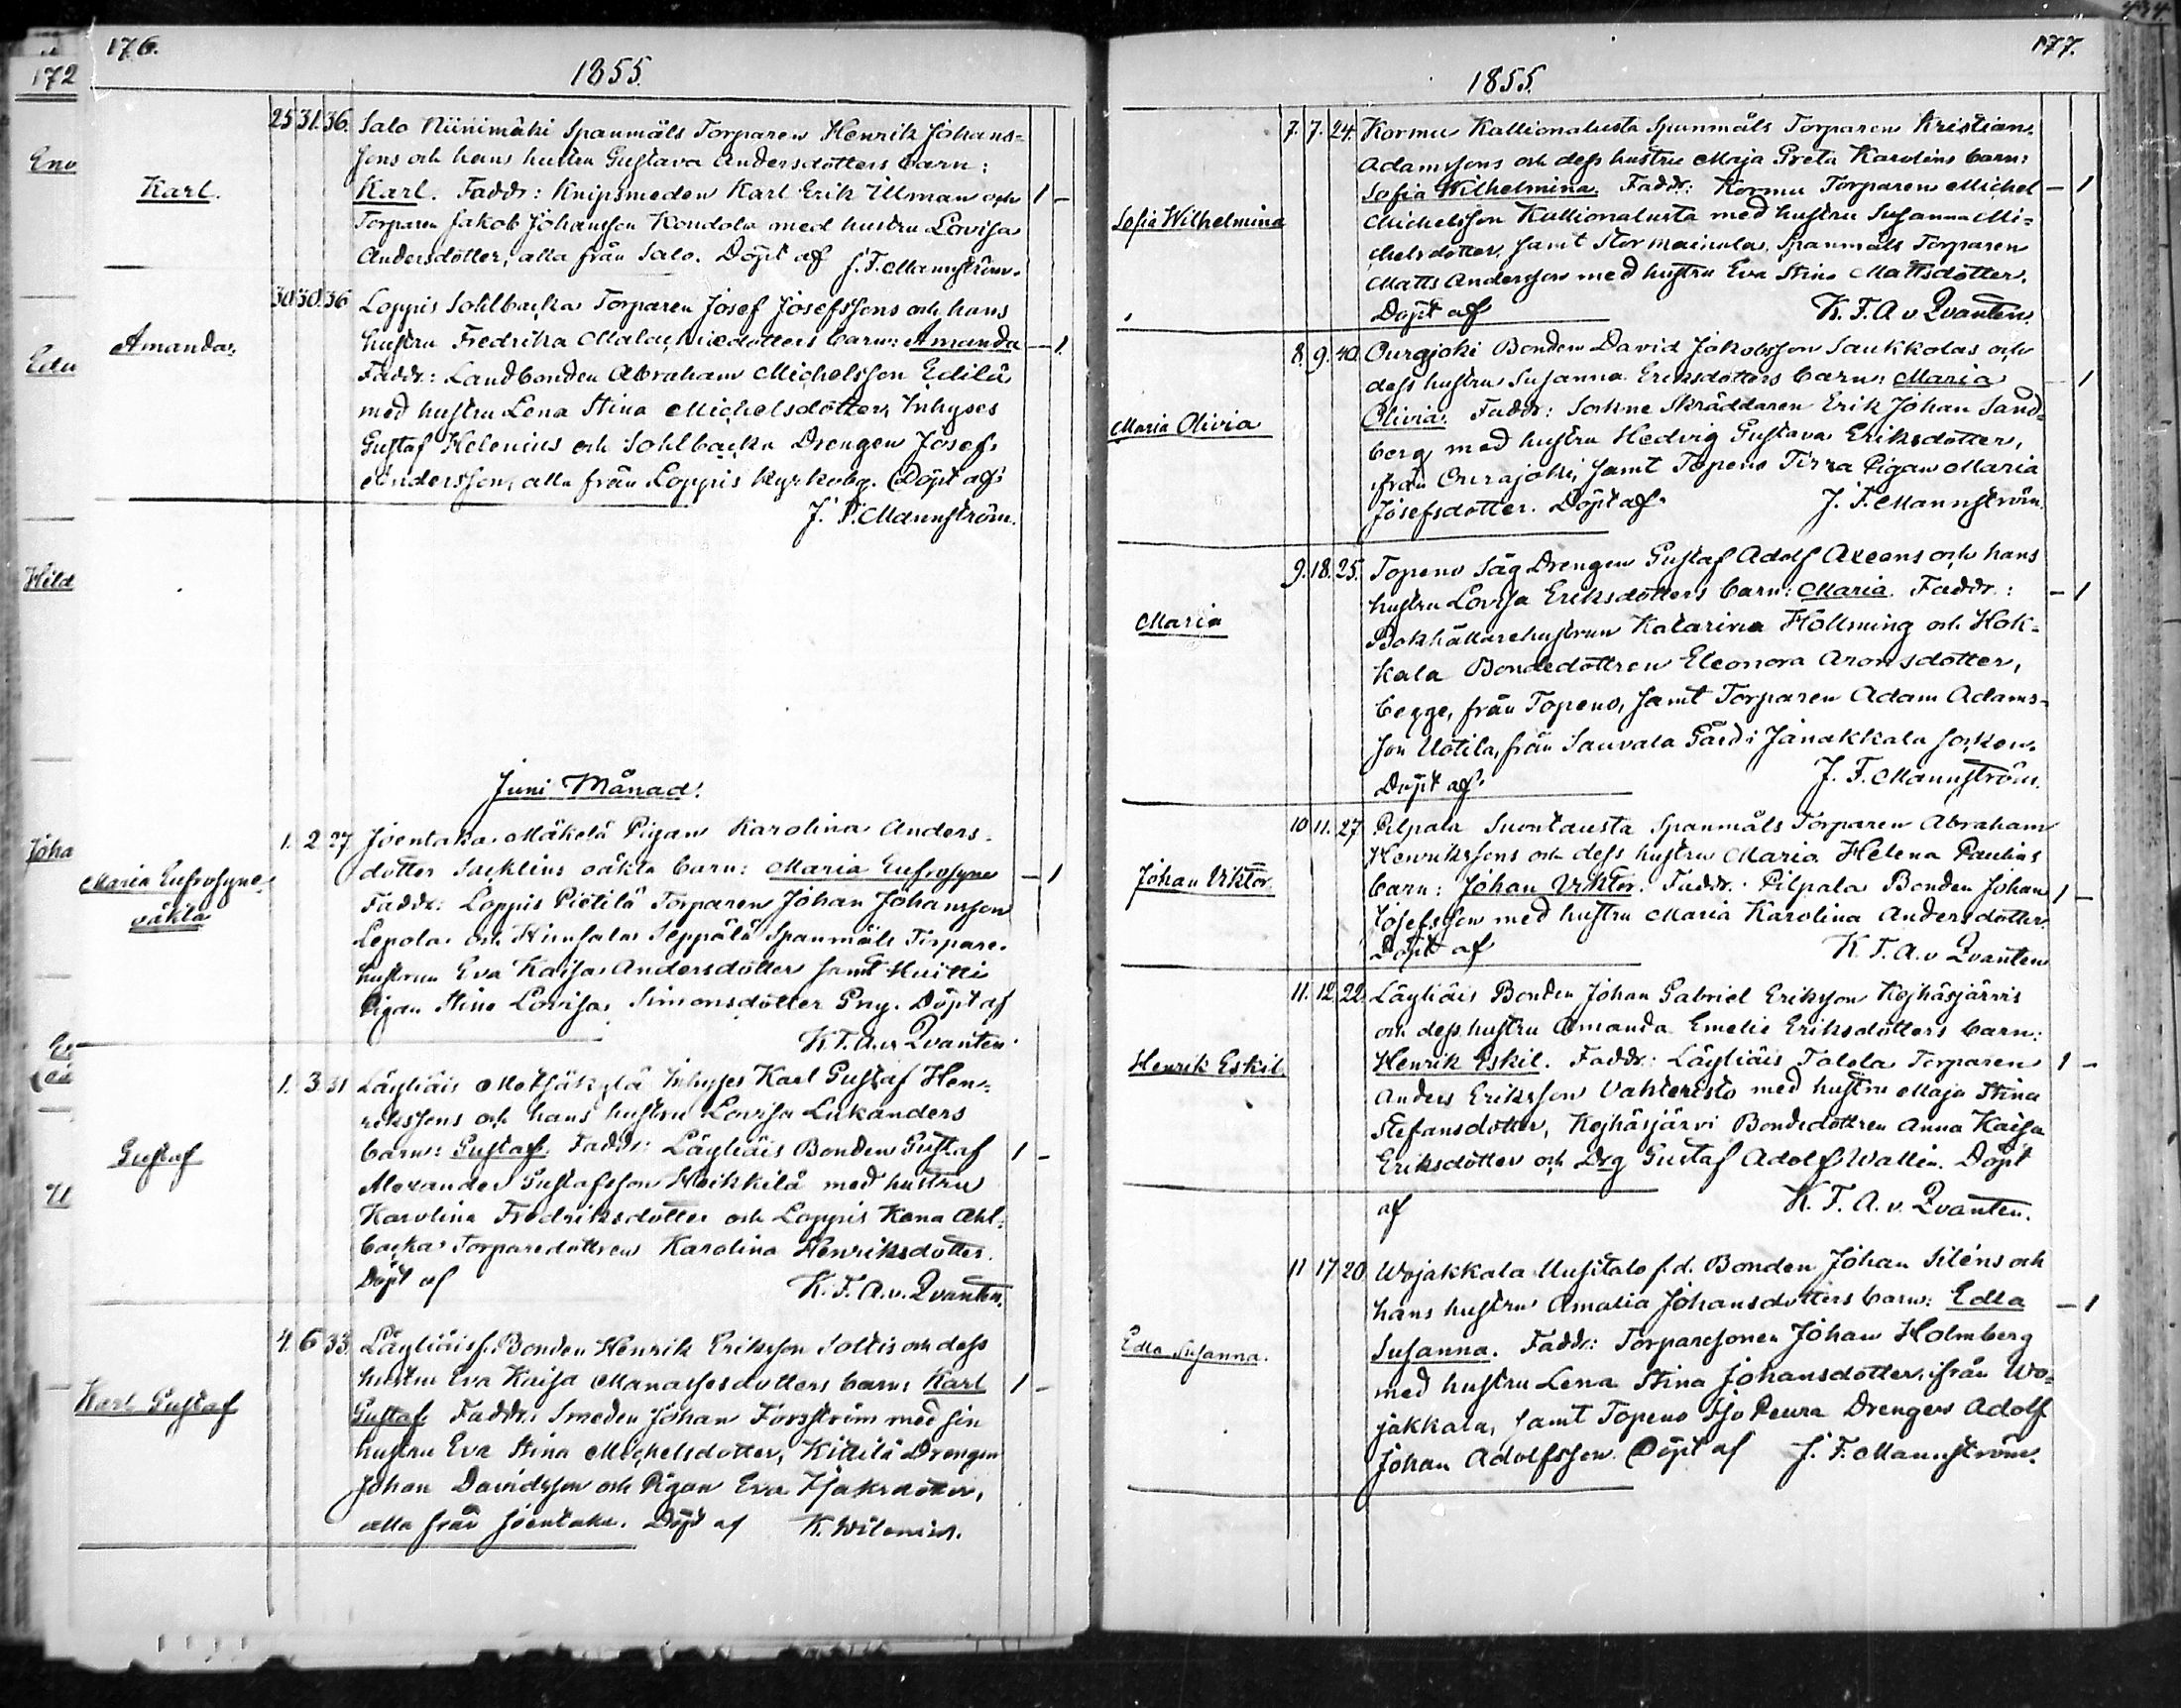 176.
172
1855.
Karl.
25 31. 36. Salo Niinimäki Spanmåls Torparen Henrik Johans=
sons och hans hustru Gustava Andersdotters barn:
Karl. Faddr: Knipsmeden Karl Erik Ulman och 1 –
Torparen Jakob Johansson Kondola med hustru Lovisa
Andersdotter, alla från Salo. Döpt af J. F. Mannström.
Amanda.
30 30. 36 Loppis Sohlbacka Torparen Josef Josefssons och hans
hustru Fredrika Malachiedotters barn: Amanda – 1.
Faddr: Landbonden Abraham Michelsson Edilä
med hustru Lena Stina Michelsdotter, Inhyses
Gustaf Helenius och Sohlbacka Drengen Josef
Andersson, alla från Loppis kyrkoby. Döpt af
J. F. Mannström.
Juni Månad.
Maria Eufrosyne
oäkta
1. 2. 27. Joentaka Mäkelä Pigan Karolina Anders-
dotter Sacklins oäkta barn: Maria Eufrosyne – 1
Faddr: Loppis Pietilä Torparen Johan Johansson
Lepola och Hunsala Seppälä Spanmåls Torpare-
hustrun Eva Kaisa Andersdotter samt
Pigan Stina Lovisa Simonsdotter Gny. Döpt af
K. F. A. v. Qvanten.
Gustaf
1. 3. 31 Läyliäis Metsäkylä Inhyses Karl Gustaf Hen-
rikssons och hans hustru Lovisa Lukanders
barn: Gustaf. Faddr: Läyliäis Bonden Gustaf 1 –
Alexander Gustafsson Heikkilä med hustru
Karolina Fredriksdotter och Loppis Kana Ahl-
backa Torparedottren Karolina Henriksdotter.
Döpt af K. F. A. v. Qvanten.
Karl Gustaf
4. 6 33. Läyliäis f. Bonden Henrik Eriksson Soltis och dess
hustru Eva Kaisa Manassesdotters barn: Karl 1 –
Gustaf. Faddr: Smeden Johan Forsström med sin
hustru Eva Stina Michelsdotter, Kittilä Drengen
Johan Davidsson och Pigan Eva Isaksdotter,
alla från Joentaka. Döpt af K. Wilenius.
177.
1855.
Sofia Wilhelmina
7. 7. 24. Kormu Kallionalusta Spanmåls Torparen Kristian
Adamssons och dess hustru Maja Greta Karolins barn:
Sofia Wilhelmina. Faddr: Kormu Torparen Michel – 1
Michelsson Kallionalusta med hustru Susanna Mi=
chelsdotter, samt Stor mainola, Spanmåls Torparen
Matts Andersson med hustru Eva Stina Mattsdotter.
Döpt af K. F. A v Qvanten.
Maria Olivia
8. 9. 40. Ourajoki Bonden David Jakobsson Saukkolas och
dess hustru Susanna Eriksdotters barn: Maria – 1
Olivia. Faddr: Sockne Skräddaren Erik Johan Sand=
berg med hustru Hedvig Gustava Eriksdotter,
från Ourajoki, samt Topeno Tirra Pigan Maria
Josefsdotter. Döpt af J. F. Mannström.
Maria
9. 18. 25. Topeno Såg Drengen Gustaf Adolf Axeens och hans
hustru Lovisa Eriksdotters barn: Maria. Faddr.: – 1
Bokhållarehustrun Katarina Hollming och Hok-
kala Bondedottren Eleonora Aronsdotter,
begge, från Topeno, samt Torparen Adam Adams-
son Uotila, från Sauvala Gård i Janakkala socken.
Döpt af J. F. Mannström.
Johan Viktor.
10 11. 27 Pilpala Suontausta Spanmåls Torparen Abraham
Henrikssons och dess hustru Maria Helena Paulins
barn: Johan Viktor. Faddr: Pilpala Bonden Johan 1 –
Josefsson med hustru Maria Karolina Andersdotter.
Döpt af K. F. A. v Qvanten
Henrik Eskil.
11. 12. 22. Läyliäis Bonden Johan Gabriel Eriksson Kojhäsjärvis
och dess hustru Amanda Emelie Eriksdotters barn:
Henrik Eskil. Faddr: Läyliäis Talola Torparen 1 –
Anders Eriksson Vahteristo med hustru Maja Stina
Stefansdotter, Kojhäsjärvi Bondedottren Anna Kaisa
Eriksdotter och Drg Gustaf Adolf Wallin. Döpt
af K. F. A. v. Qvanten.
Edla Susanna.
11 17 20 Wojakkala Uusitalo f.d. Bonden Johan Siléns och
hans hustru Amalia Johansdotters barn: Edla – 1
Susanna. Faddr: Torparesonen Johan Holmberg
med hustru Lena Stina Johansdotter, ifrån Wo=
jakkala, samt Topeno Iso Peura Drengen Adolf
Johan Adolfsson. Döpt af J. F. Mannström.